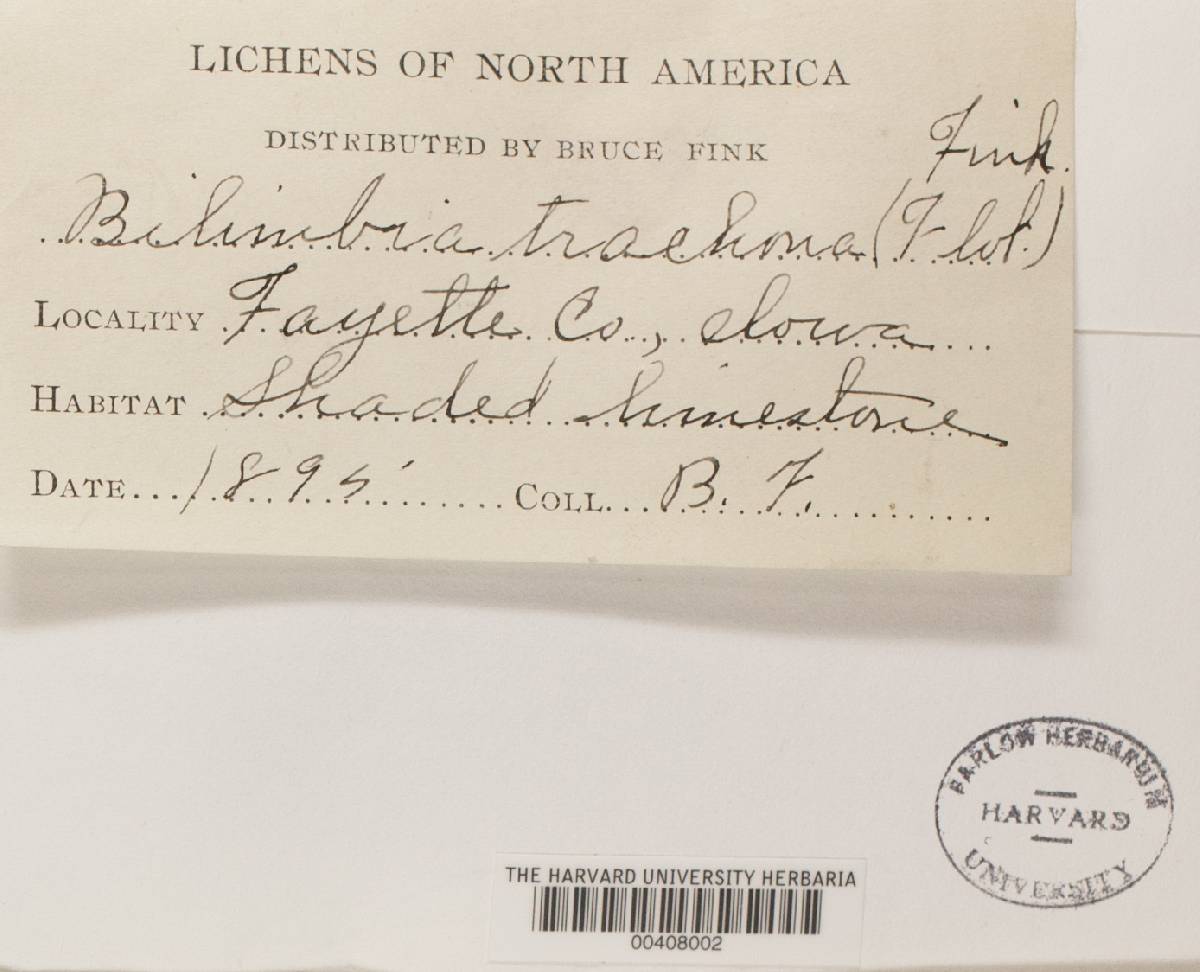 LICHENS OF NORTH AMERICA
DISTRIBUTED BY BRUCE FINK
Fink.
Bilimbia trachona (Flot.)
LOCALITY Fayette Co., Iowa
HABITAT Shaded limestone
DATE...1895........COLL...B. F.
FARLOW HERBARIUM
HARVARD
UNIVERSITY
THE HARVARD UNIVERSITY HERBARIA
00408002